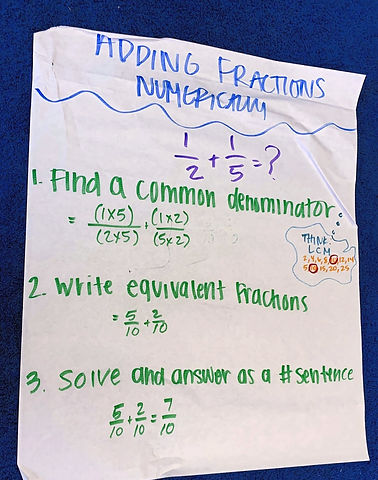 ADDING FRACTIONS
NUMERICALLY
1/2 + 1/5 = ?
1. Find a common denominator
= (1x5)/(2x5) + (1x2)/(5x2)
THINK:
LCM
2, 4, 6, 8, 10, 12, 14
5, 10, 15, 20, 25
2. Write equivalent fractions
= 5/10 + 2/10
3. Solve and answer as a # sentence
5/10 + 2/10 = 7/10